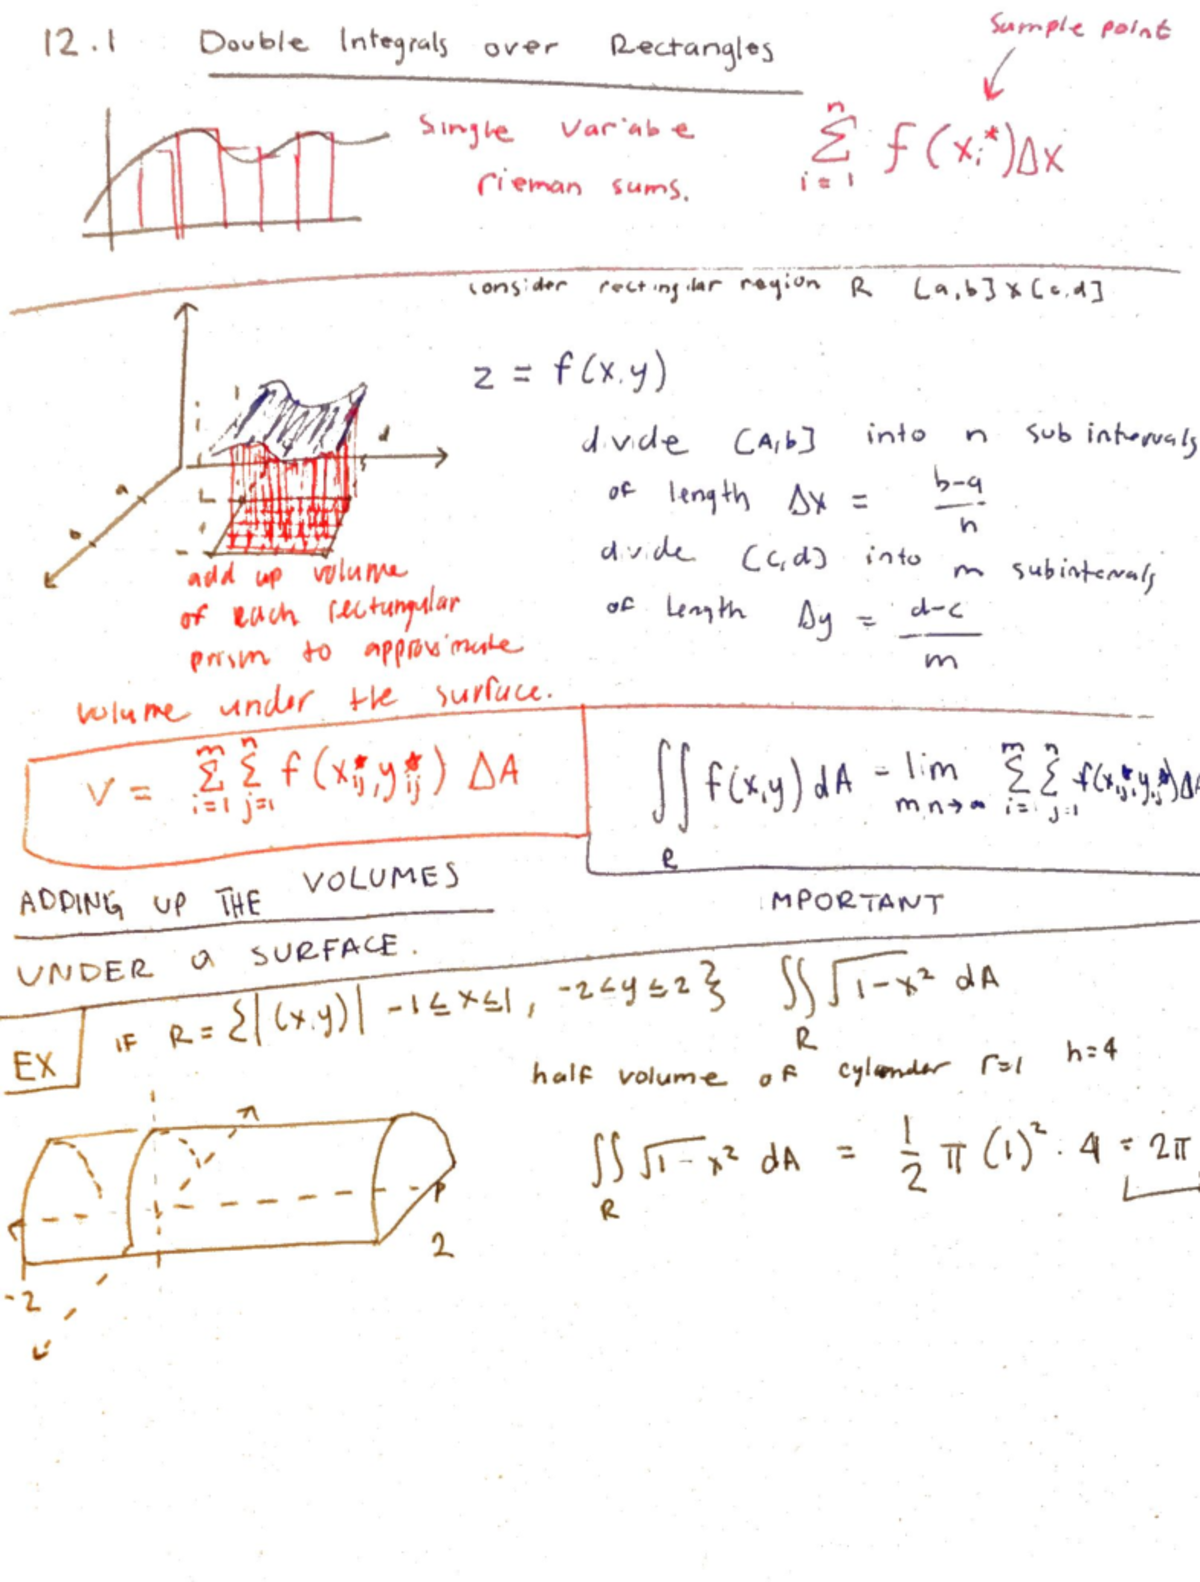 12.1 Double Integrals over Rectangles
Sample point
Single Variable
rieman sums.
n
Σ f(xᵢ*)Δx
i=1
consider rectinglar region R [a,b]x[c,d]
z = f(x,y)
d
a
b
divide [A,b] into n subintervals
of length Δx = b-a
n
divide [c,d] into m subintervals
of Length Δy = d-c
m
add up volume
of each rectungular
prism to approximate
volume under the surface.
V = Σ Σ f(xᵢⱼ*,yᵢⱼ*) ΔA
m n
i=1 j=1
∫∫ f(x,y) dA = lim Σ Σ f(xᵢⱼ*,yᵢⱼ*)ΔA
R m,n→∞ i= j=1
m n
ADDING UP THE VOLUMES
UNDER a SURFACE.
IMPORTANT
EX IF R = {|(x,y)| -1≤x≤1, -2≤y≤2} ∫∫ √1-x² dA
R
half volume of cylender r=1 h=4
∫∫ √1-x² dA = 1/2 π (1)² · 4 = 2π
R
2
-2